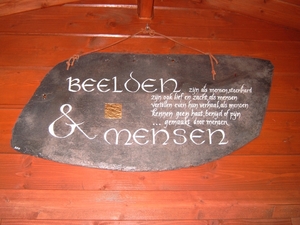 BEELDEN zijn als mensen, steenhard
zijn ook lief en zacht, als mensen
vertellen even hun verhaal, als mensen
kennen geen haat, benijd of pijn
... gemaakt door mensen
& MENSEN